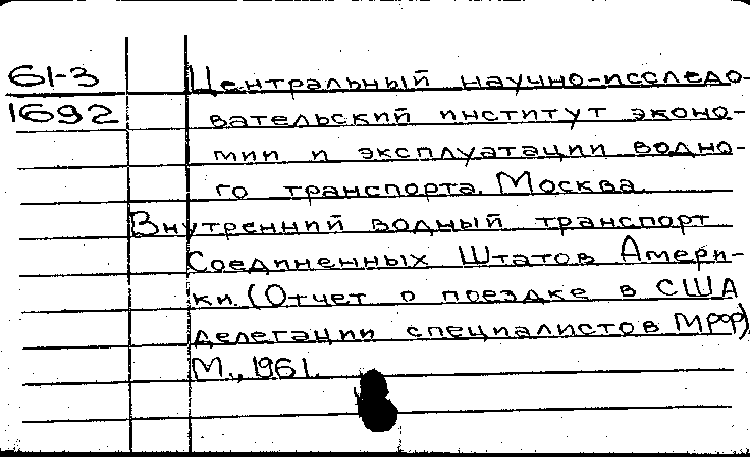 61-3 Центральный научно-исследо-
1692 вательский институт эконо-
мии и эксплуатации водно-
го транспорта. Москва.
Внутренний водный транспорт
Соединенных Штатов Амери-
ки. (Отчет о поездке в США
делегации специалистов МРФ)
М., 1961.